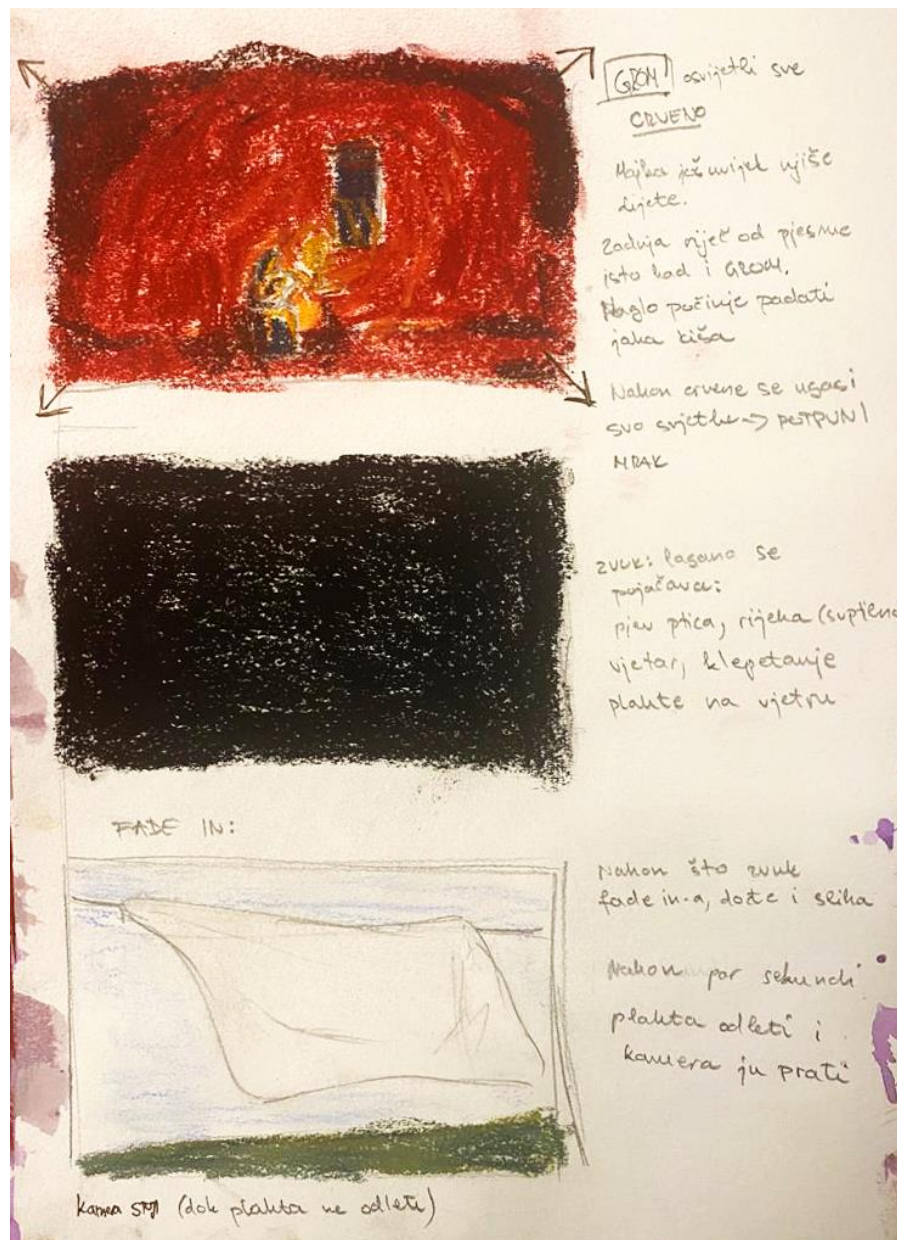 GROM osvijetli sve
CRVENO
Majka još uvijek njiše
dijete.
Zadnja riječ od pjesme
isto kad i GROM.
Naglo počinje padati
jaka kiša
Nakon crvene se ugasi
svo svjetlo → POTPUNI
MRAK
zvuk: lagano se
pojačava:
pjev ptica, rijeka (suptilno
vjetar, klepetanje
plahte na vjetru
FADE IN:
Nakon što zvuk
fade in-a, dođe i slika
Nakon par sekundi
plahta odleti i
kamera ju prati
kamera stoji (dok plahta ne odleti)